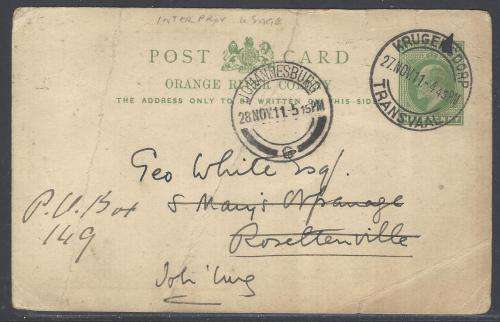 INTERPROV USAGE
POST CARD
ORANGE RIVER COLONY
THE ADDRESS ONLY TO BE WRITTEN ON THIS SIDE.
KRUGERSDORP
27.NOV.11-5.45PM
TRANSVAAL
JOHANNESBURG
28.NOV.11-5.15PM
6
Geo White Esq.
P.O. Box
149
S Mary's
Rosettenville
Joh'burg